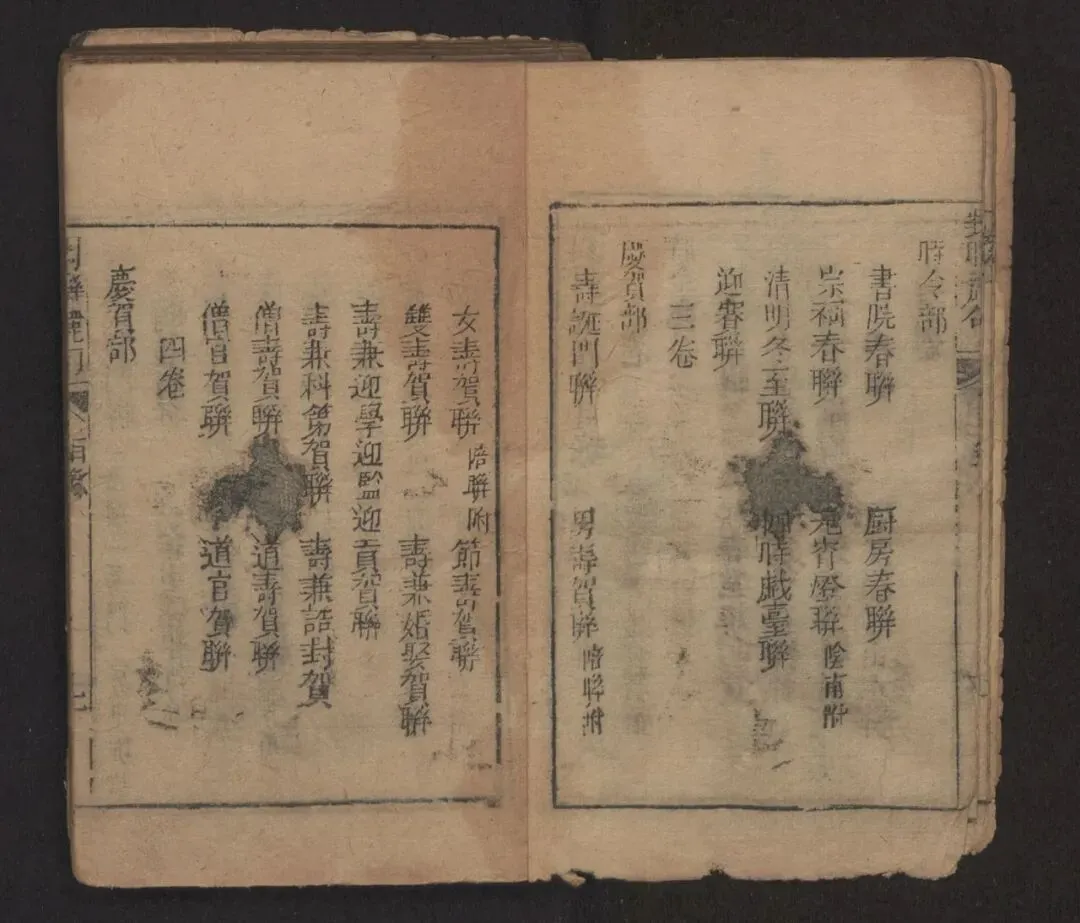 時令部
書院春聯 厨房春聯
宗祠春聯 元宵燈聯
清明冬至聯 四時戲臺聯
迎春聯
三卷
慶賀部
壽誕門聯 男壽賀聯
女壽賀聯 節壽賀聯
雙壽賀聯 壽兼婚娶賀聯
壽兼迎學迎監迎貢賀聯
壽兼科第賀聯 壽兼誥封賀
僧壽賀聯 道壽賀聯
僧官賀聯 道官賀聯
四卷
慶賀部